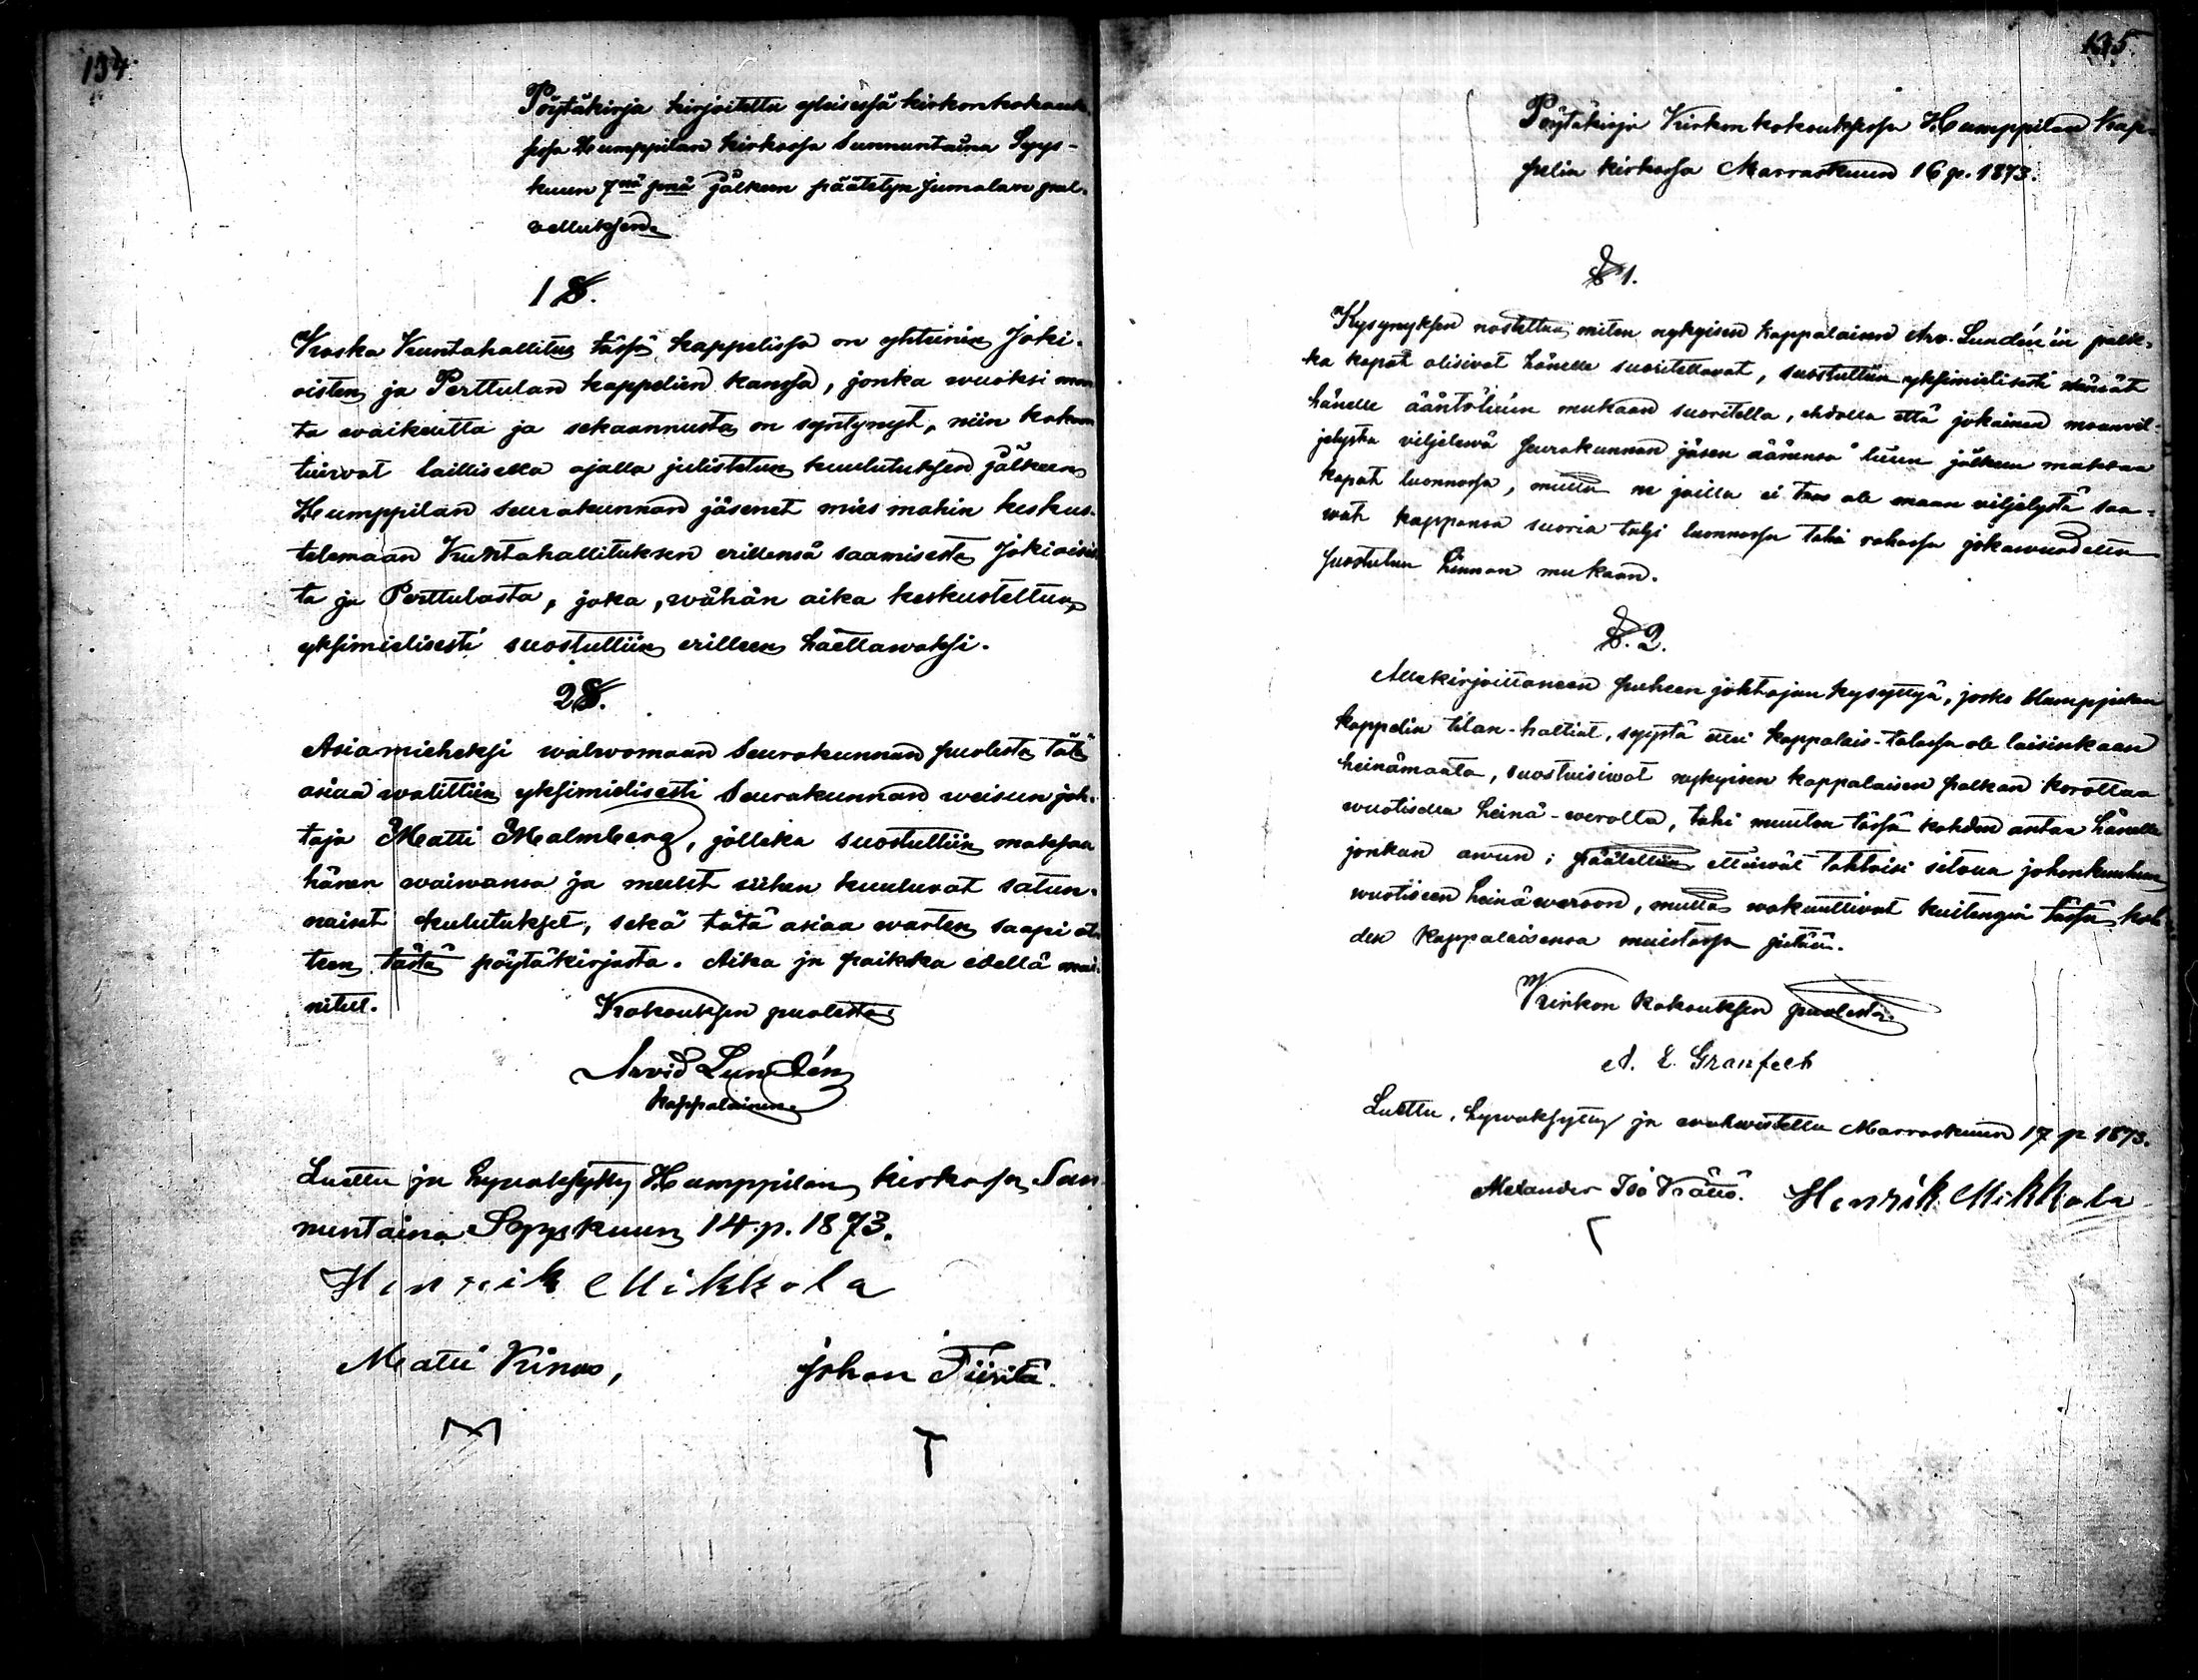 134.
Pöytäkirja kirjoitettu yleisessä kirkonkokouk-
sessa Humppilan kirkossa Sunnuntaina Syys-
kuun 7nä pnä jälkeen päätetyn jumalan pal-
velluksen.
1 §.
Koska Kuntahallitus tässä kappelissa on yhteinen Joki-
oisten ja Perttulan kappelien kanssa, jonka wuoksi mon
ta waikeutta ja sekaannusta on syntynyt, niin kokoon
tuivat laillisella ajalla julistetun kuulutuksen jälkeen
Humppilan seurakunnan jäsenet mies mohin keskus-
telemaan Kuntahallituksen erillensä saamisesta Jokioisis
ta ja Perttulasta, joka, wähän aika keskusteltua,
yksimielisesti suostuttiin erilleen haettawaksi.
2 §.
Asiamieheksi walwomaan Seurakunnan puolesta tätä
asiaa walittiin yksimielisesti Seurakunnan weisun joh-
taja Matti Malmberg, jolleka suostuttiin maksaa
hänen waiwansa ja muut siihen kuuluvat satun-
naiset kulutukset, sekä tätä asiaa warten saapi ot-
teen tästä pöytäkirjasta. Aika ja paikka edellä mai-
nitut.
Kokouksen puolesta
Arvid Lundén
Kappalainen.
Luettu ja hyväksytty Humppilan kirkossa Sun
nuntaina Syyskuun 14 p. 1873.
Henrik Mikkola
Matti Kinos, Johan Tiirita.
M T
135.
Pöytäkirja Kirkonkokouksessa Humppilan Kap-
pelin kirkossa Marraskuun 16 p. 1873.
§ 1.
Kysymyksen nostettua miten nykyisen kappalaisen Arv. Lundén'in palk-
ka kapat olisivat hänelle suoritettavat, suostuttiin yksimielisesti nämät
hänelle ääntöluun mukaan suoritella, ehdolla että jokainen maanvil-
jelystä viljelewä seurakunnan jäsen äänensä luun jälkeen maksaa
kapat luonnossa, mutta ne joilla ei taas ole maan viljelystä saa-
wat kappansa suoria tahi luonnossa tahi rahassa jokawuodelta
suostutun hinnan mukaan.
§. 2.
Allekirjoittaneen puheen johtajan kysyttyä, josko Humppilan
kappelin tilan-haltiat, syystä ettei kappalais-talossa ole laisinkaan
heinämaata, suostuisiwat nykyisen kappalaisen palkan korottaa
wuotisella heinä-werolla, tahi muuten tässä kohden antaa hänelle
jonkun awun; päätettiin etteiwät tahtoisi sitoua johonkuuhun
wuotiseen heinäweroon, mutta wakuuttivat kuitengin tässä koh-
den kappalaisensa muistossa pitää.
Kirkon kokouksen puolesta
A. E. Granfelt
Luettu, hywäksytty ja wahwistettu Marraskuun 17 p 1873.
Alexander Iso Henrik Mikkola